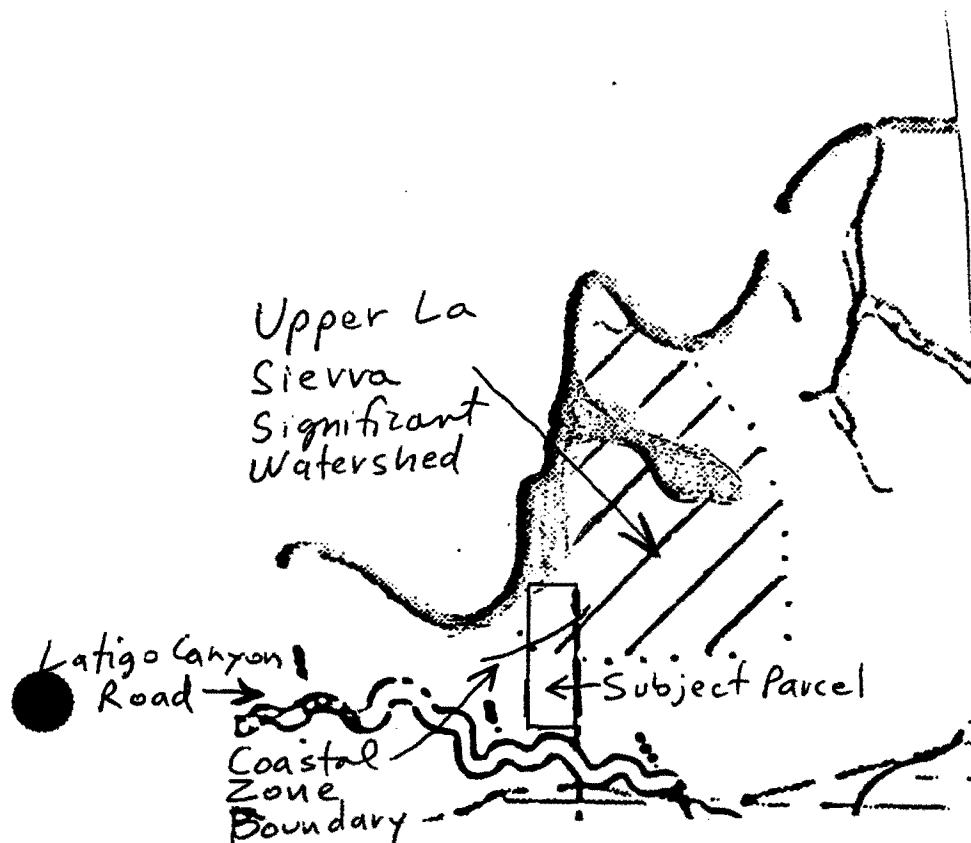 Upper La
Sierra
Significant
Watershed
Latigo Canyon
Road
Subject Parcel
Coastal
Zone
Boundary